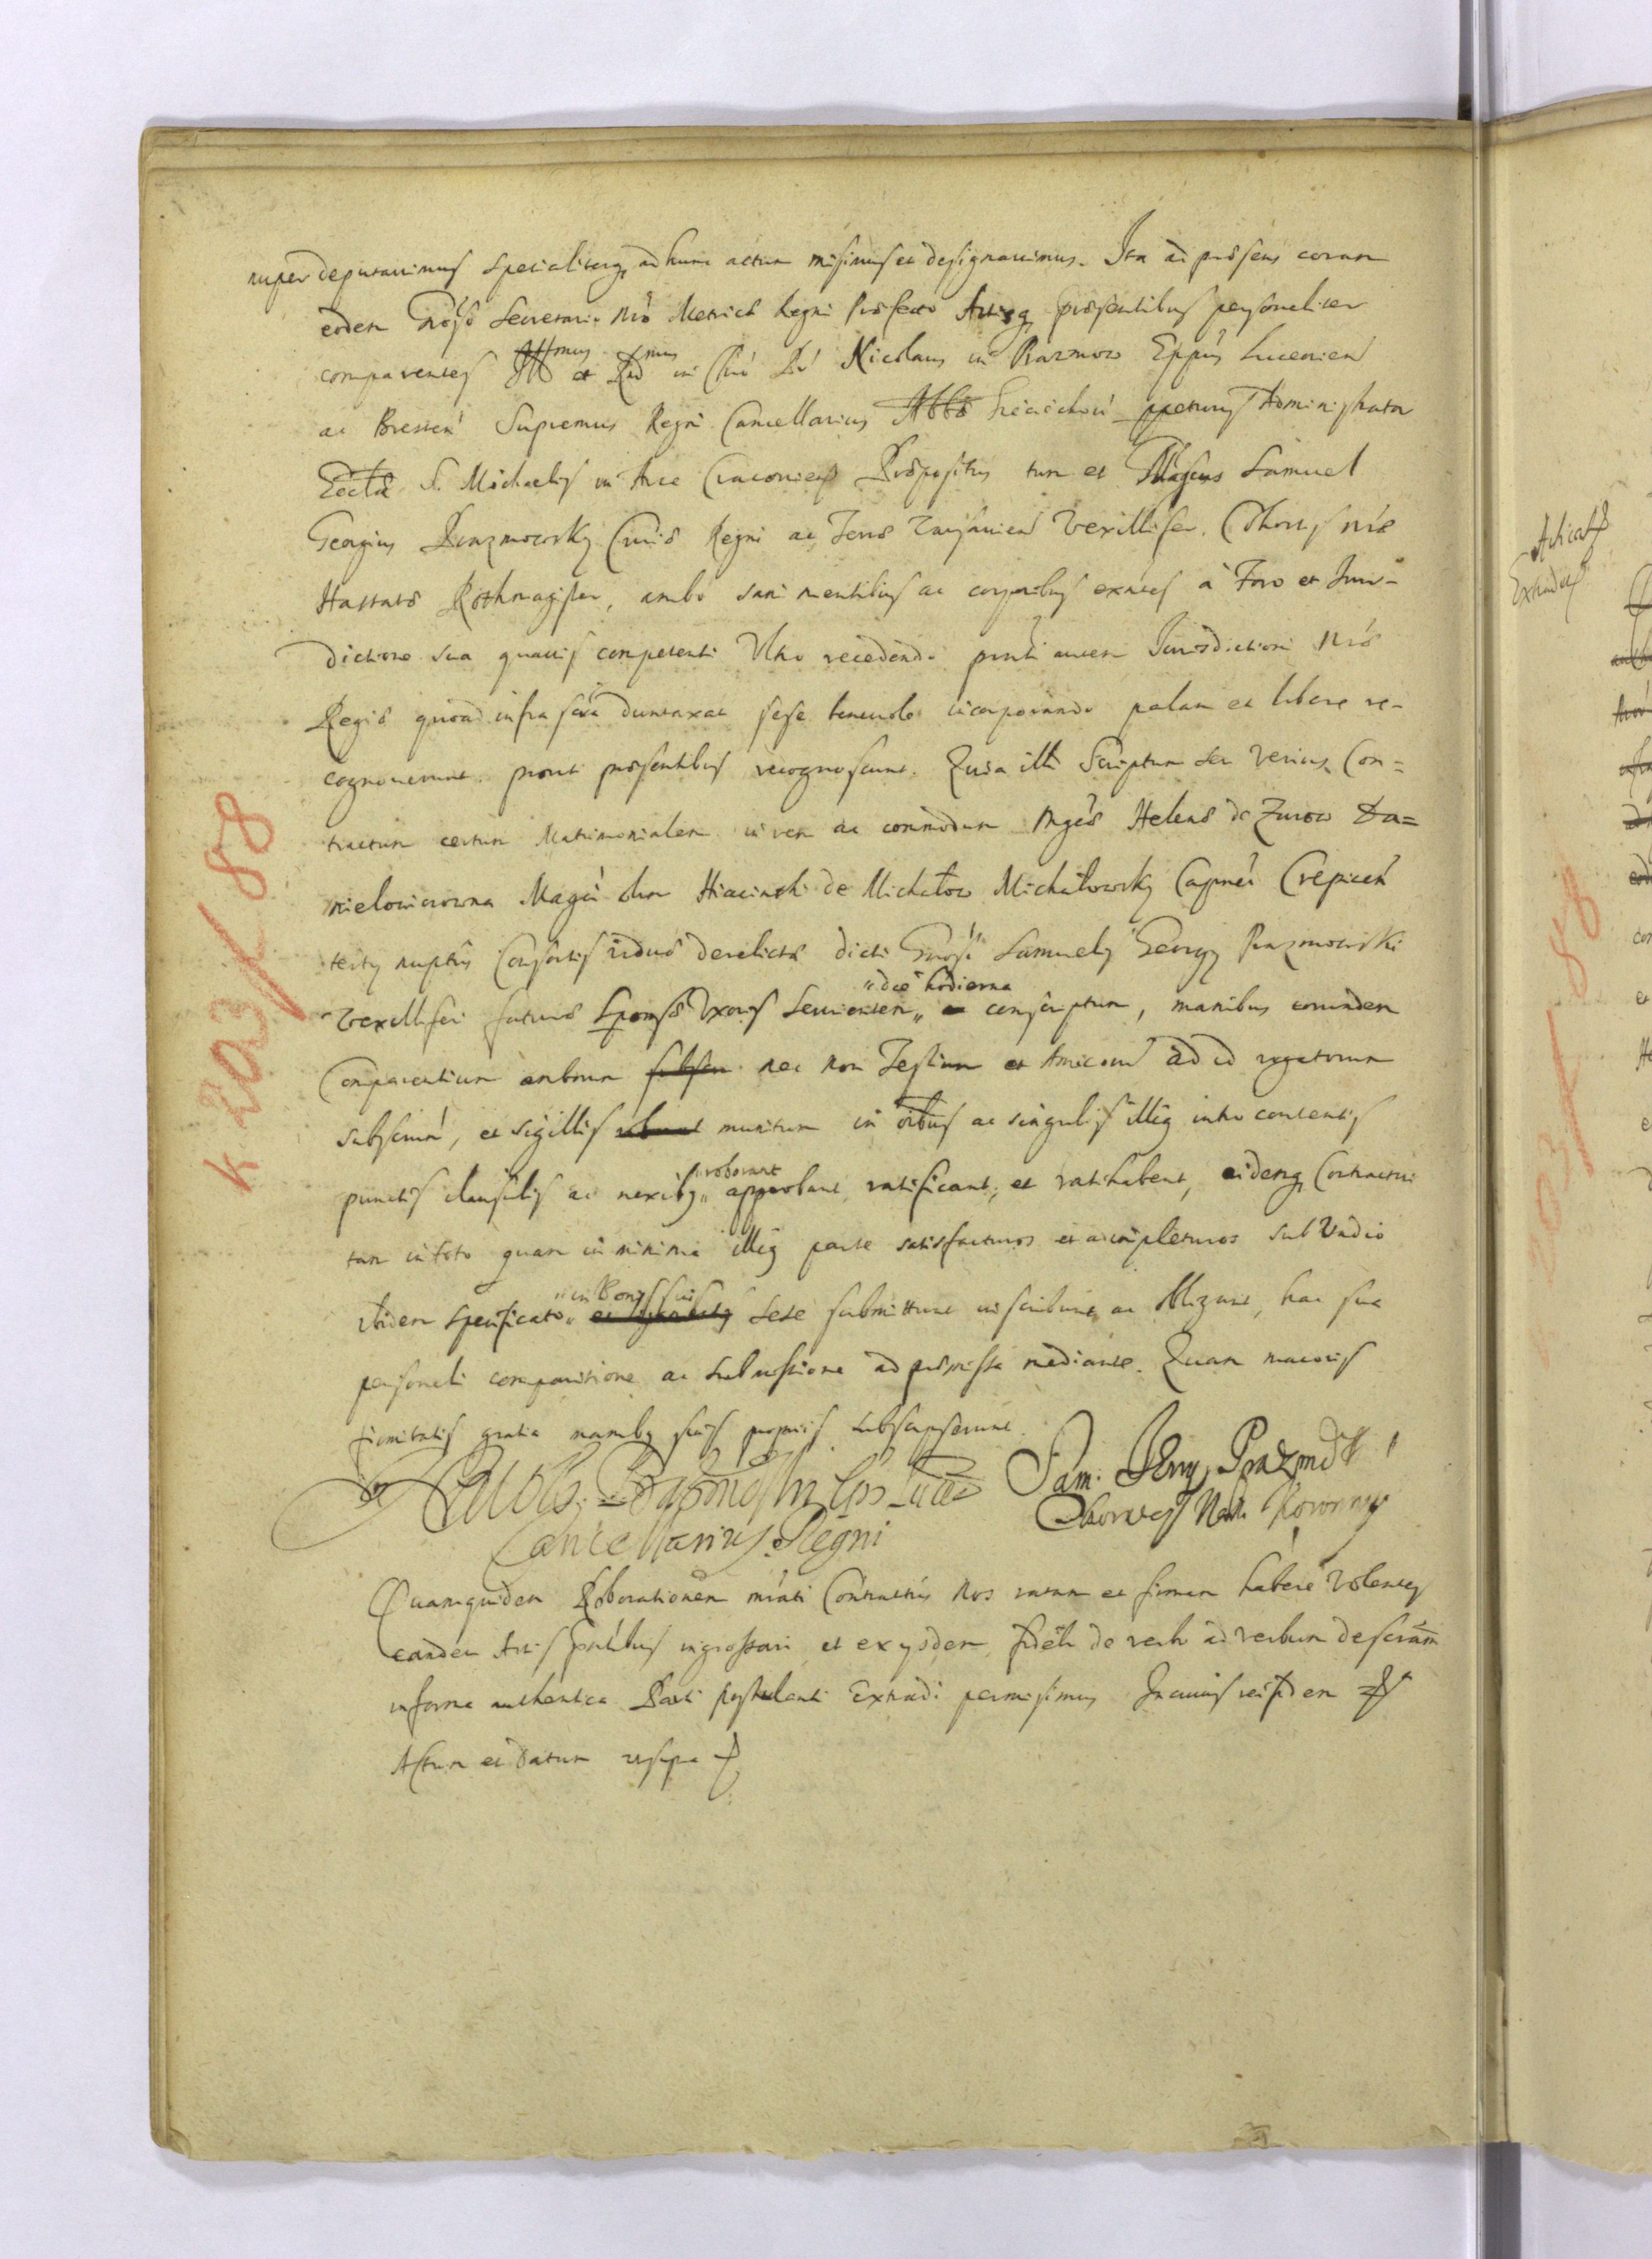 nuper deputavimus specialiterq, ad hunc actum misimus et designavimus. Ita ad præsens coram
eodem Gnoso Secretario Nro Metrices Regni Præfecto Actisq præsentibus personaliter
comparentes Illmus et Rndmus in Chro Pr Nicolaus in Prazmow Eppus Luceorien
ac Bresten Supremus Regni Cancellarius Abbā Sieciechovi ppetuus Administrator
Ecclæ S. Michaelis in Arce Cracovien Præpositus tum et Magcus Samuel
Georgius Prazmowsky Curiæ Regni ac Terræ Varsavien Vexillifer. Cohortis nræ
Hastatæ Rothmagister, ambo sani mentibus ac corporibus existes à Foro et Juris-
dictione sua quavis competenti Ultro recedendo pnti autem Jurisdictioni Nræ
Regiæ quoad infra scra duntaxat sese benevole incorporando palam et libere re-
cognoverunt. prout præsentibus recognoscunt. Quia illi Scriptum seu verius Con=
tractum certum Matrimonialem in rem ac commodum Mgcæ Helenæ de Zurow Da=
nielowiczowna Magci olim Hiacinthi de Michałow Michałowsky Capnei Crepicen
tertÿ nuptûs Consortis viduæ derelictæ dicti Gnosi Samuelis Georgÿ Prazmowski
Vexilliferi futuræ Sponsæ Uxoris Servientem „ die hodierna conscriptum, manibus eorundem
Comparentium amborum subscr nec non Testium et Amicorum ad id rogatorum
subscrium, et sigillis munitum in oibus ac singulis illiq intro contentis
punctis clausulis ac nexibq „ roborant approbant, ratificant, et ratihabent, eidemq Contractui
tam in toto quam in minima illiq parte satisfacturos et adimpleturos sub Vadio
ibidem specificato „ in Bonis suis sese submittunt inscribunt, ac obligant, hac sua
personali comparitione ac submissione ad præmissa mediante. Quam maioris
firmitatis gratia manibq suis proprijs subscripserunt.
Mikołaj Prazmowsky Eps Luce Sam. Jerzy Prazmowski
Cancellarius Regni Chorązy Nad. Koronny
Quamquidem Roborationem mrati Contractus Nos ratam et firmam habere Volentes
eandem Actis pntibus ingrossari et ex ijsdem fidelr de verbo ad verbum descriam
in forma authentica Parti postulanti Extradi permisimus In cuius rei fidem
Actum et Datum ut supra
K 203 / 88